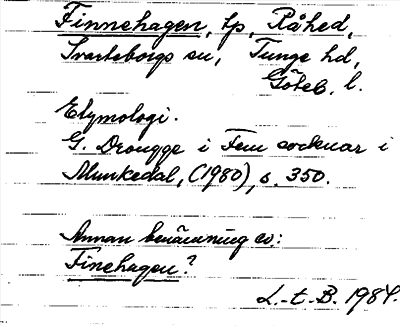 Finnehagen, tp, Råhed,
Svarteborgs sn, Tunge hd,
Göteb. l.
Etymologi.
G. Drougge i Fem socknar i
Munkedal, (1980), s. 350.
Annan benämning ev:
Finehagen?
L.-t. B. 1984.